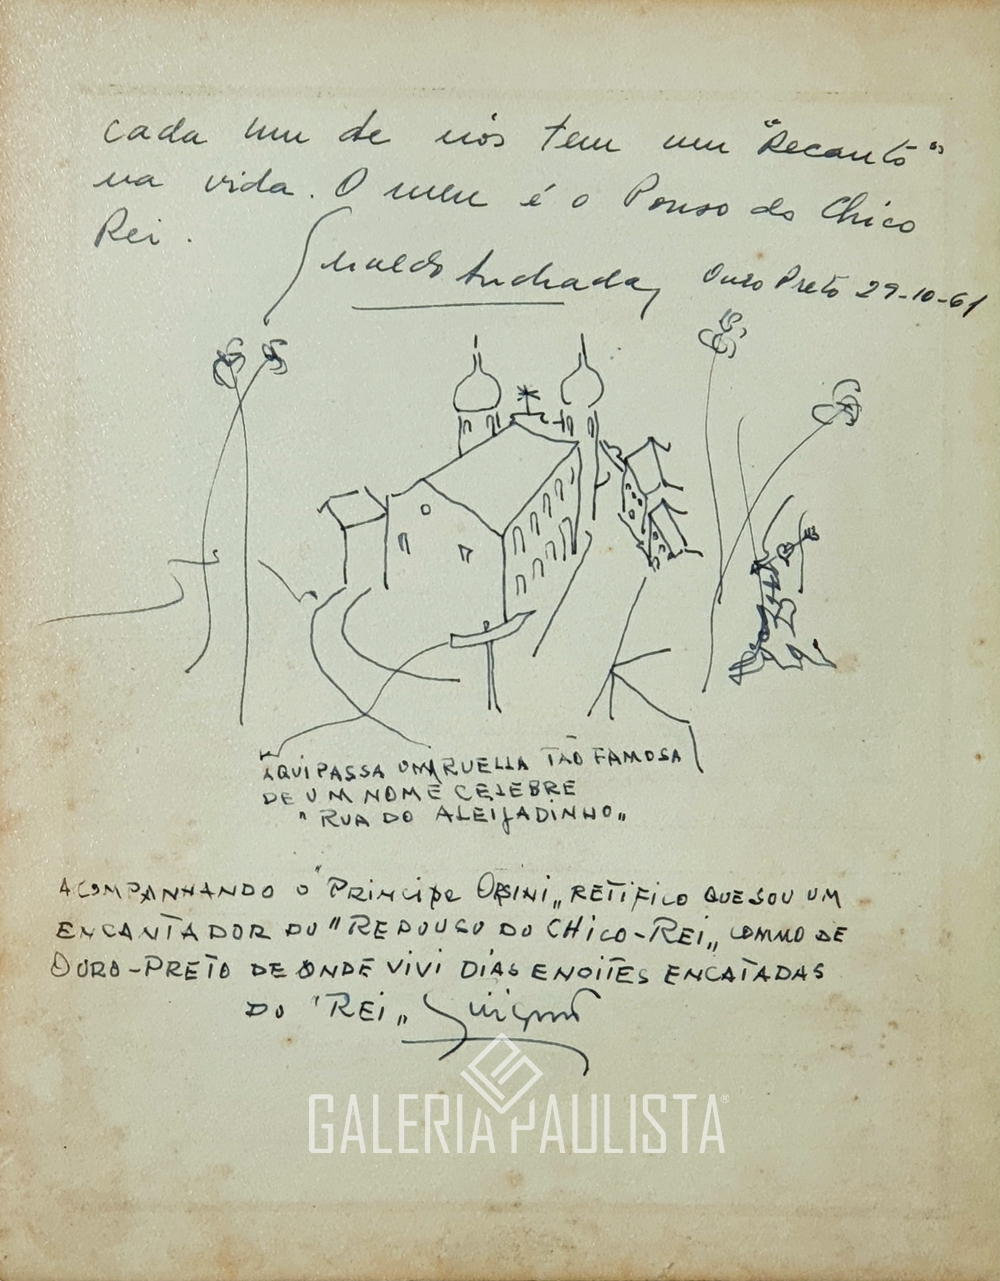 cada um de nós tem um "Recanto"
na vida. O meu é o Pouso do Chico
Rei.
Andrada, Ouro Preto 29-10-61
AQUI PASSA UMA RUELLA TÃO FAMOSA
DE UM NOME CELEBRE
"RUA DO ALEIJADINHO"
ACOMPANHANDO O "PRINCIPE ORSINI" RETIFICO QUE SOU UM
ENCANTADOR DO "REPOUSO DO CHICO-REI" COMMO DE
OURO-PRETO DE ONDE VIVI DIAS E NOITES ENCATADAS
DO "REI" Guignard
GALERIA PAULISTA®